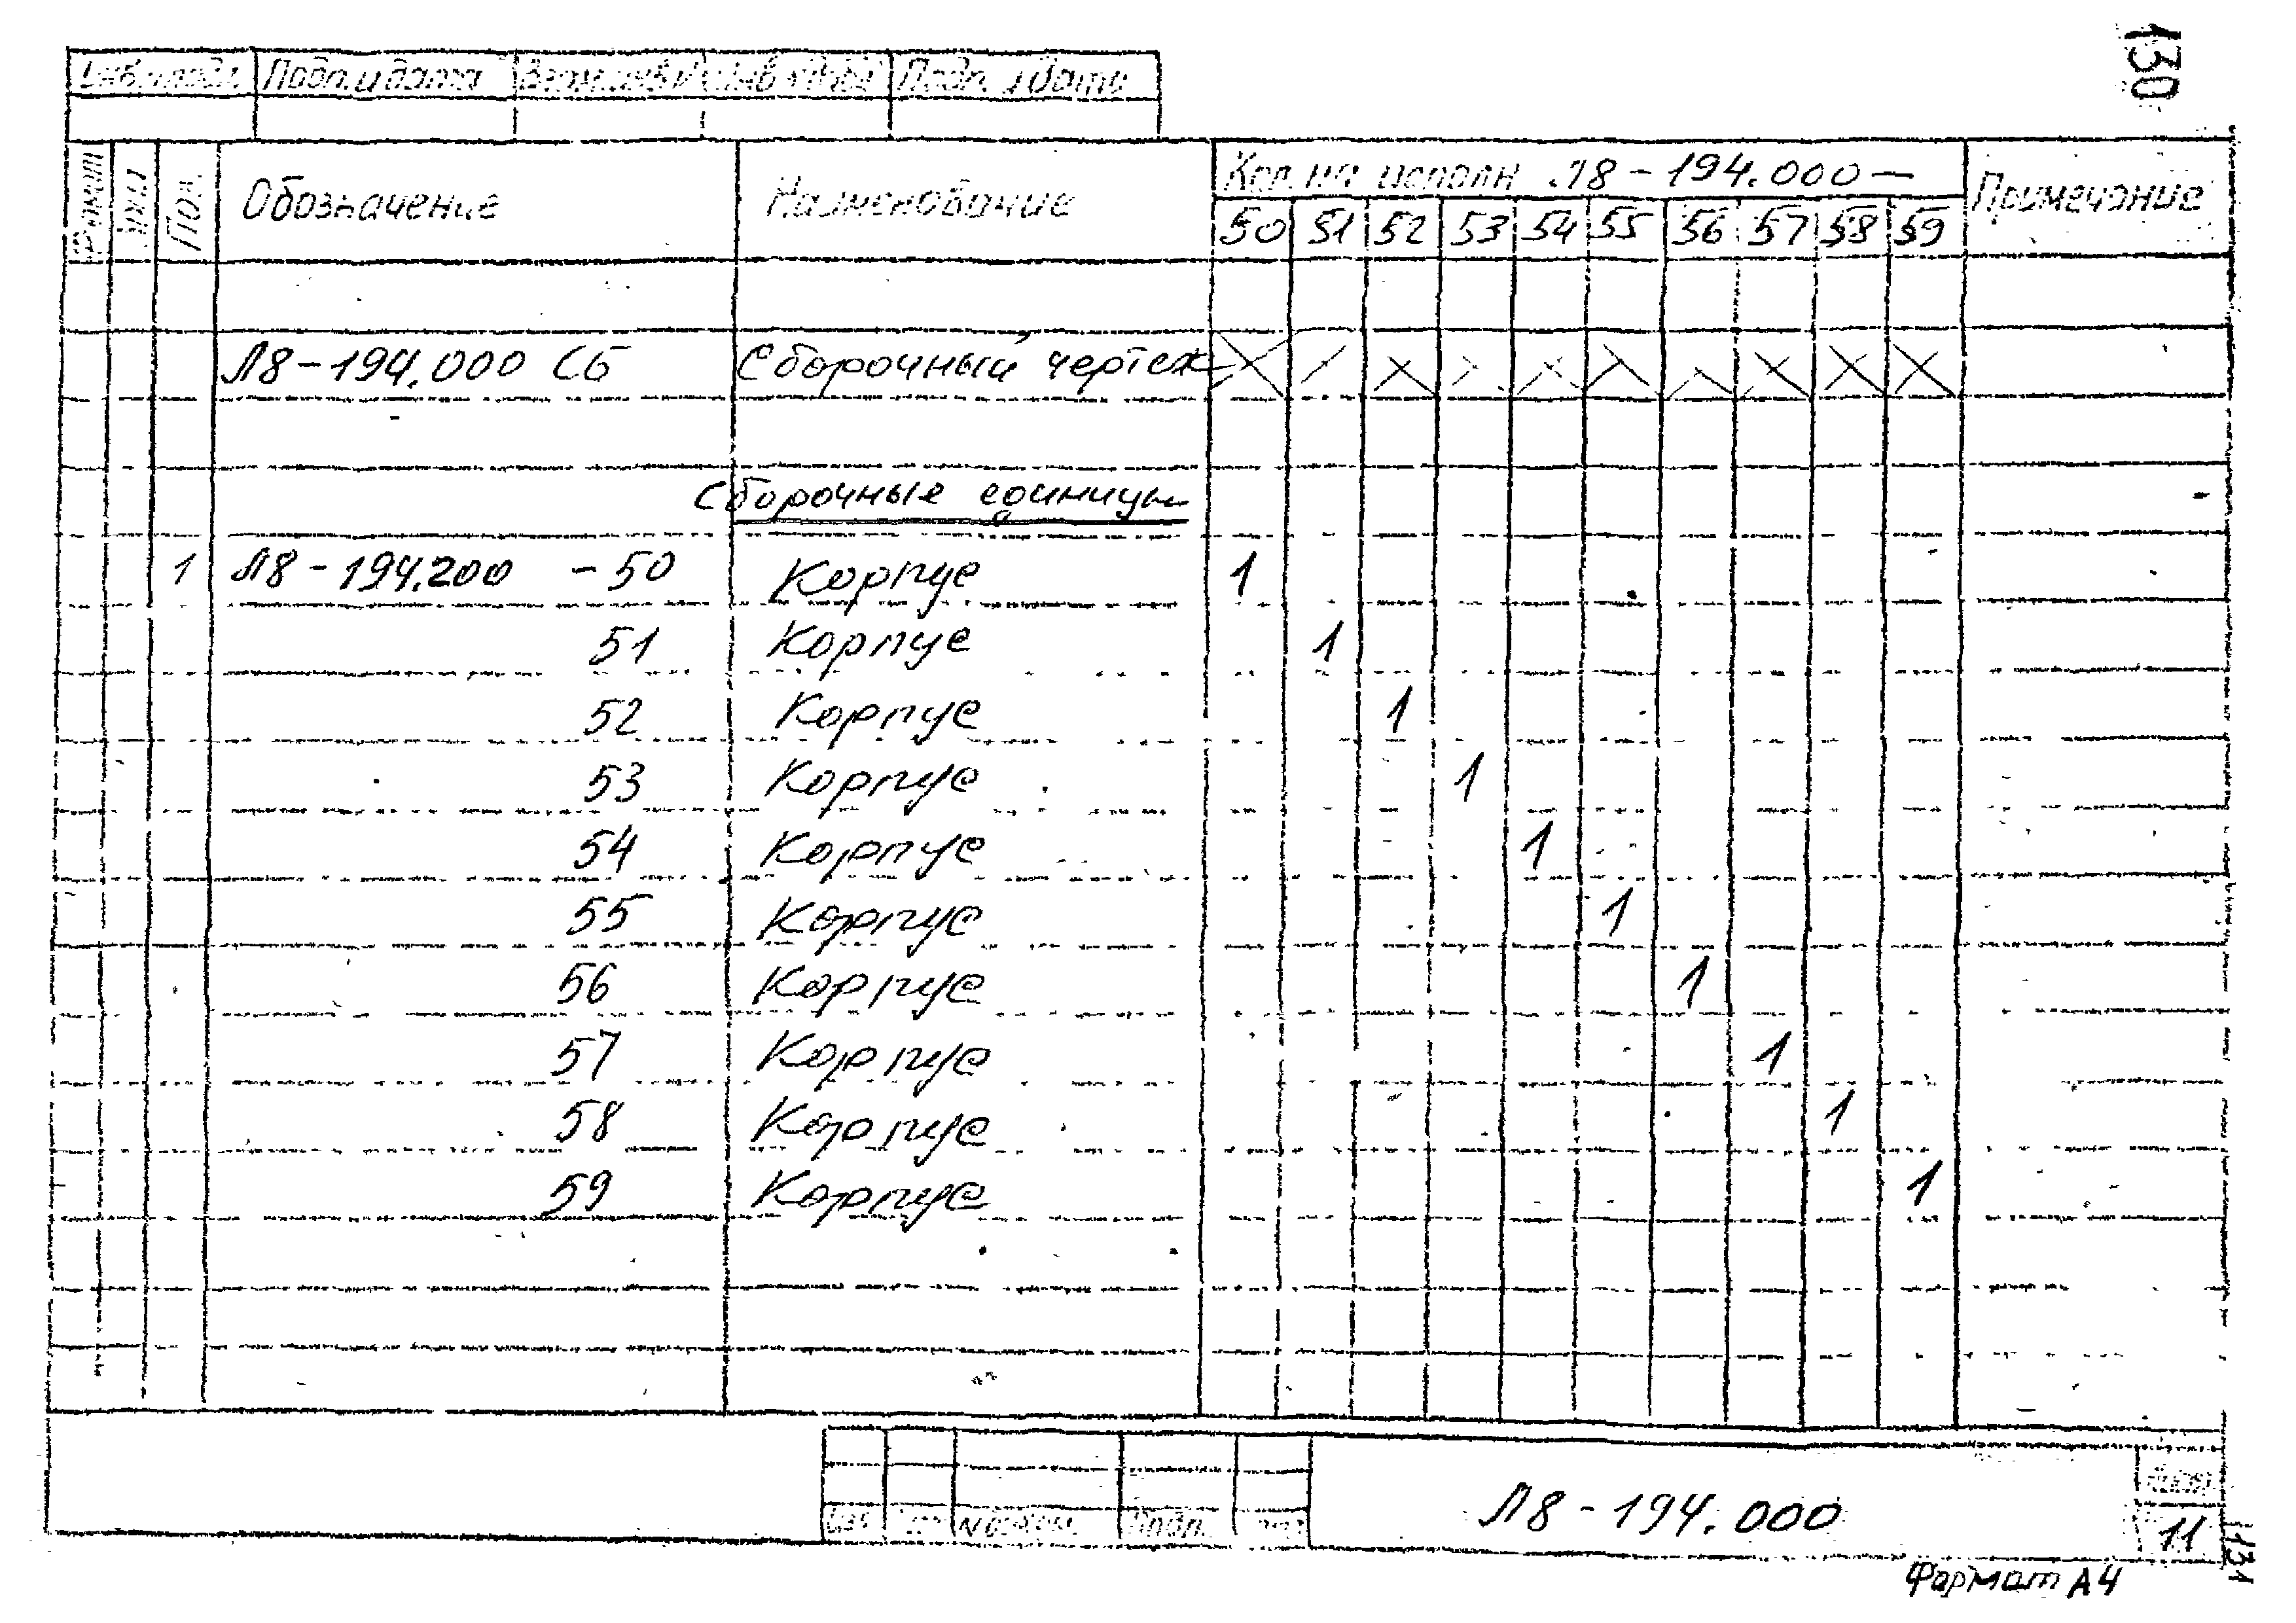 130
Инв.№подл. Подп. и дата Взам.инв.№ Инв.№дубл. Подп. и дата
Формат Зона Поз. Обозначение Наименование Кол. на исполн. Л8-194.000- Примечание
50 51 52 53 54 55 56 57 58 59
Л8-194.000 СБ Сборочный чертеж X X X X X X X X X X
Сборочные единицы
1 Л8-194.200 -50 Корпус 1
51 Корпус 1
52 Корпус 1
53 Корпус 1
54 Корпус 1
55 Корпус 1
56 Корпус 1
57 Корпус 1
58 Корпус 1
59 Корпус 1
Л8-194.000
Изм. Лист № докум. Подп. Дата
Лист
11
Формат А4
131